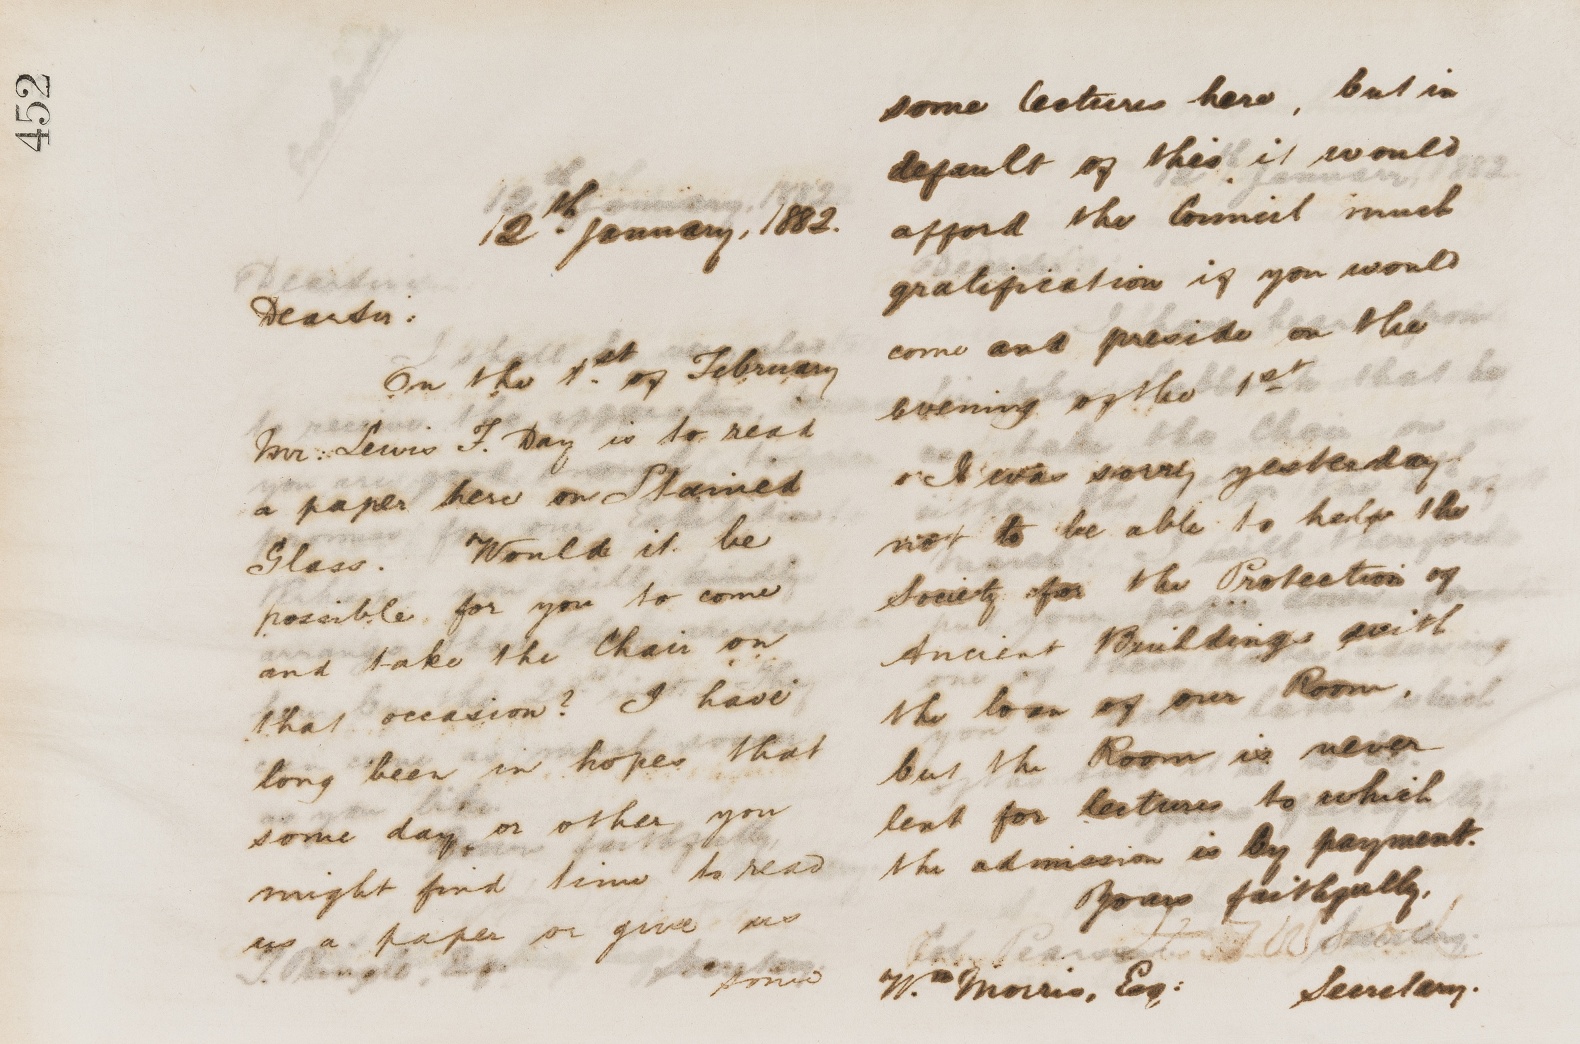 452
12th January, 1882.
Dear Sir:
On the 1st of February
Mr. Lewis F. Day is to read
a paper here on Stained
Glass. Would it be
possible for you to come
and take the Chair on
that occasion? I have
long been in hopes that
some day or other you
might find time to read
us a paper or give us
some
some lectures here, but in
default of this it would
afford the Council much
gratification if you would
come and preside on the
evening of the 1st
I was sorry yesterday
not to be able to help the
Society for the Protection of
Ancient Buildings with
the loan of our Room,
but the Room is never
lent for lectures to which
the admission is by payment.
Yours faithfully,
Wm Morris, Esq: Secretary.